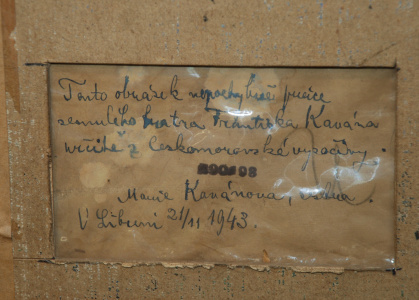 Tento obrázek nepochybně práce
zesnulého bratra Františka Kavána
určitě z Českomoravské vysočiny.
Marie Kavánova, vdova.
V Libuni 21/11 1943.